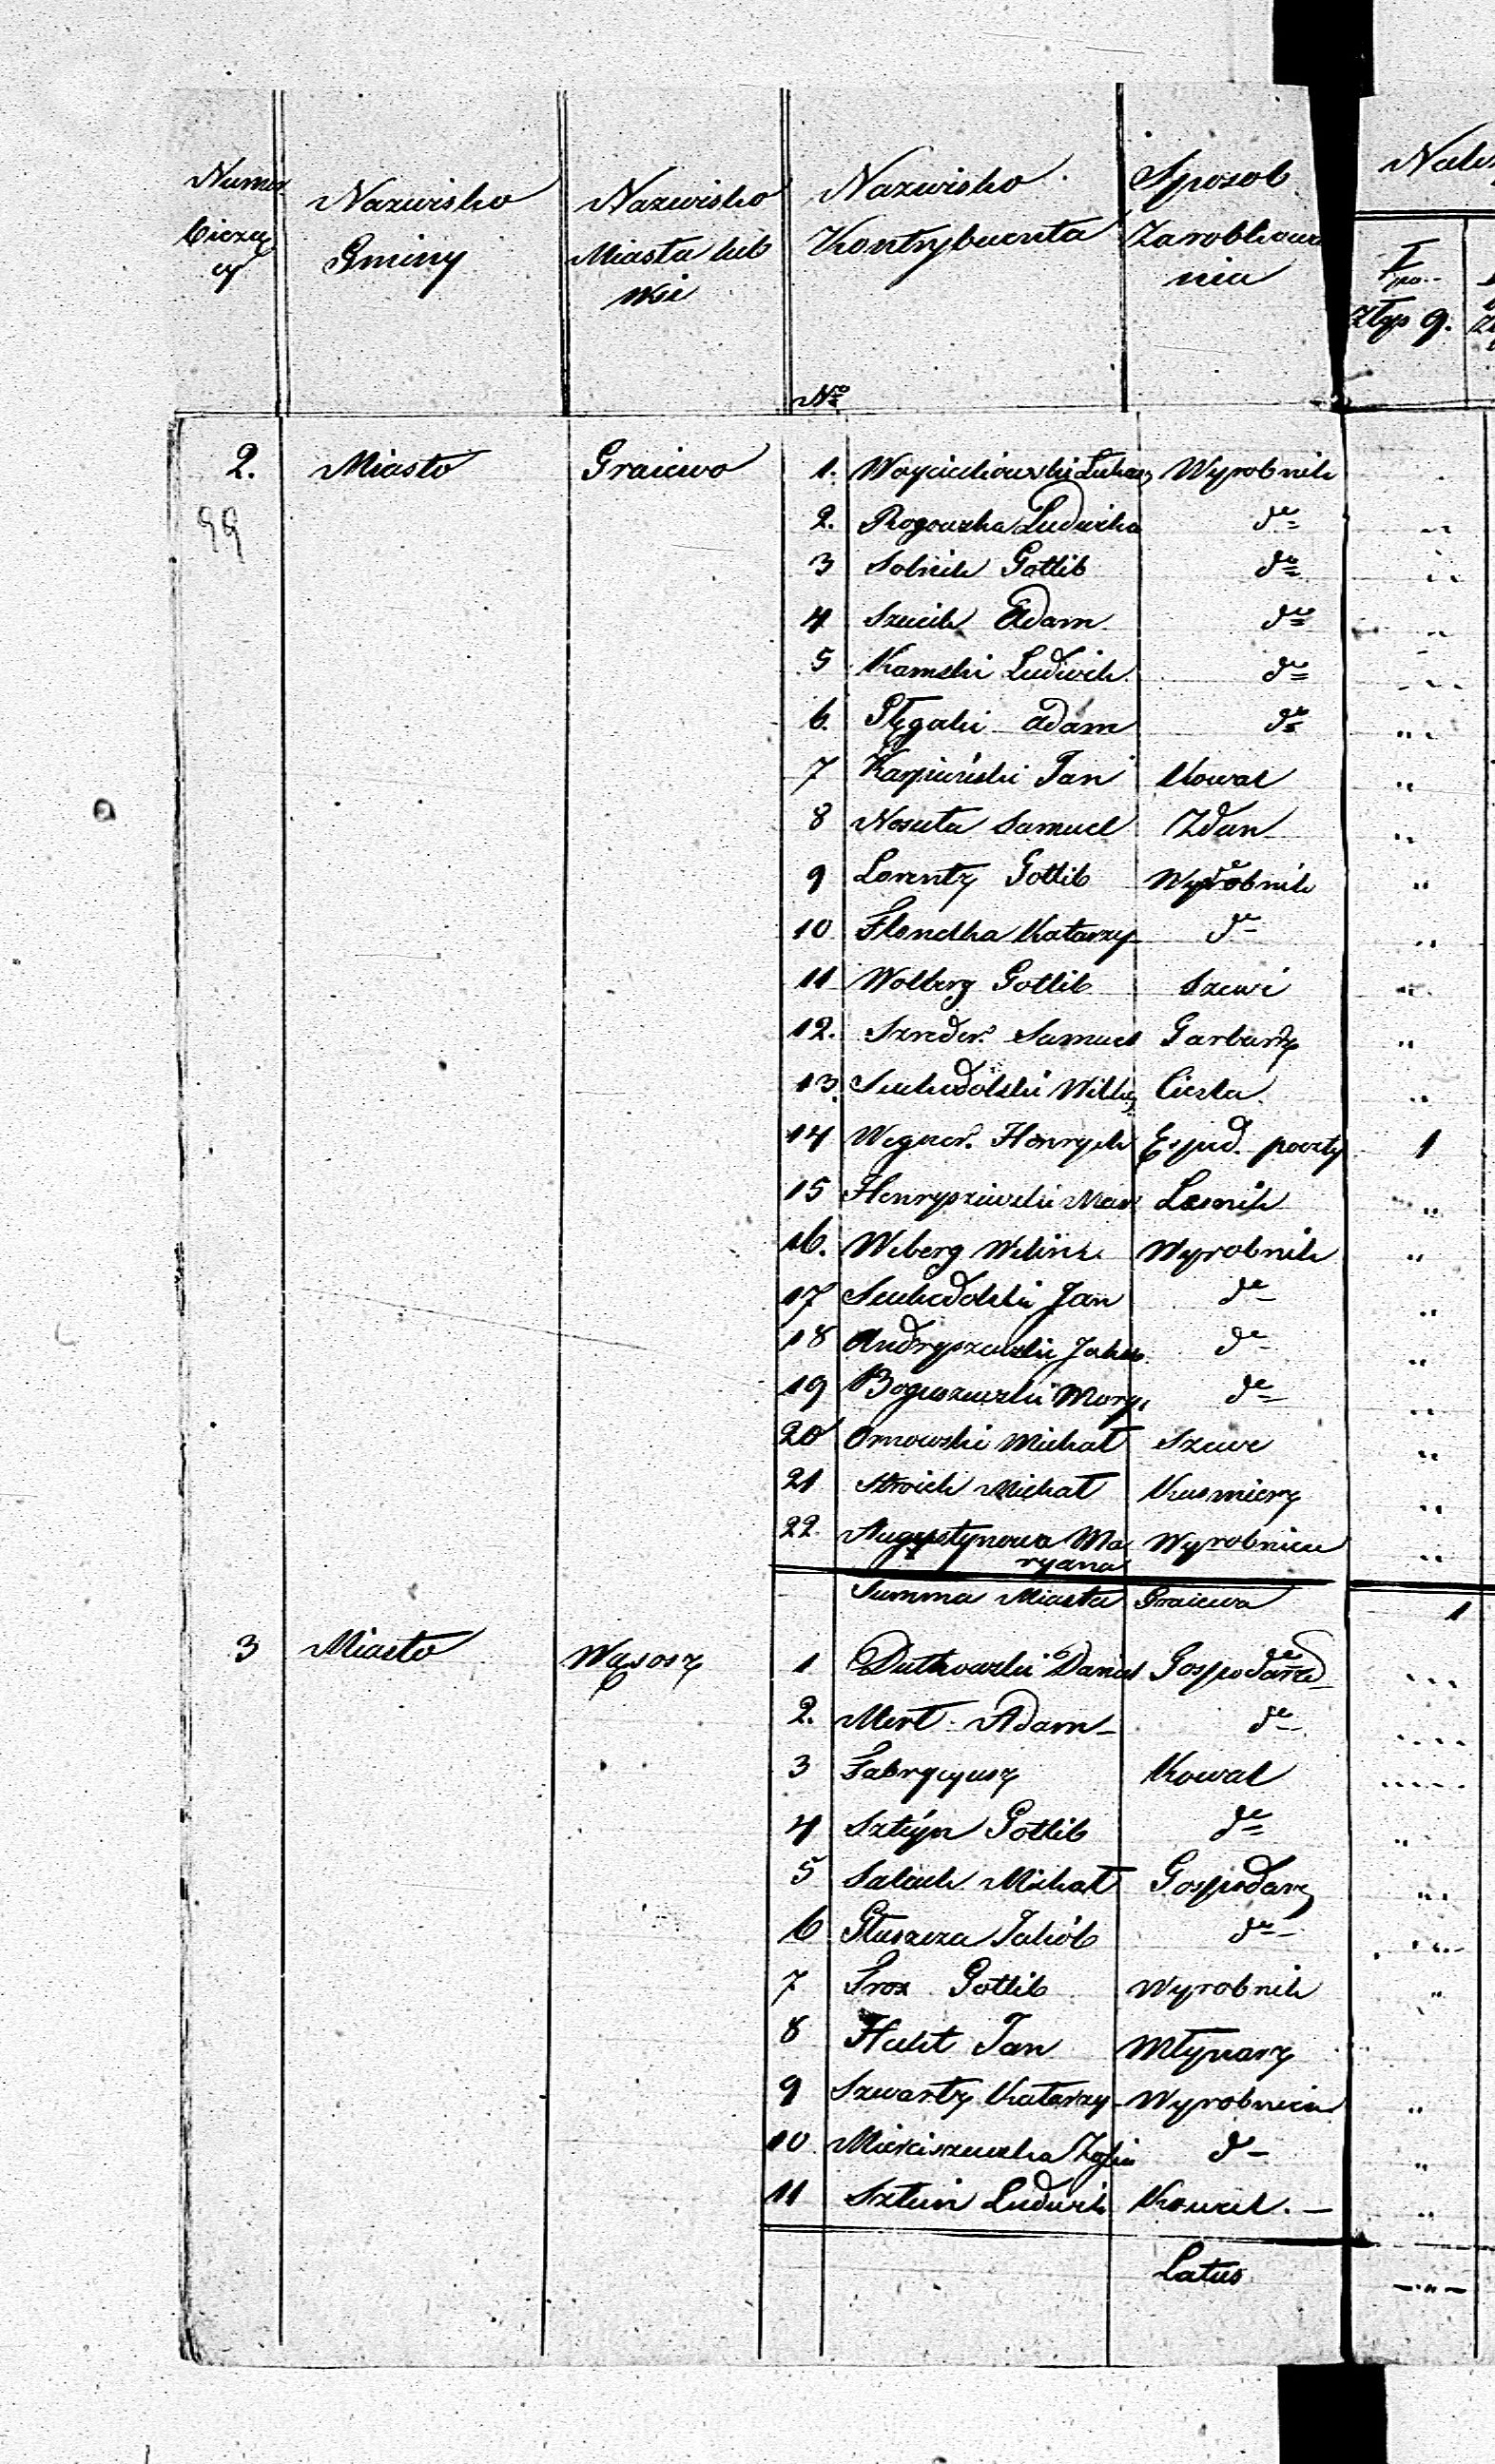 Numer bieżący Nazwisko Gminy Nazwisko Miasta lub wsi Nazwisko Kontrybuenta Sposob Zarobkowania
I
złtp g.
No
2. Miasto Graiewo 1. Woyciechowski Łukasz Wyrobnik
99 2. Rogowska Ludwika de
3 Solnik Gotlib de
4 Szucik Adam de
5 Kamski Ludwik de
6. Adam de
7 Karpiński Jan Kowal
8 Nosuta Samuel Zdun
9 Lorentz Gotlib Wyrobnik
10 Katarzy de
11 Wolberg Gotlib Szewc
12. Szreder Samuel Garbarz
13. Suchodolski Ciesla
14 Wegner Henryk Exped. poczty 1
15 Henryszewski Lesnik
16. Weberg Wyrobnik
17 Suchodolski Jan de
18 Andryszewski Jakub de
19 Boguszewski de
20 Ornowski Michał Szewc
21 Stroich Michał Kusmierz
22. Augustynowa Maryana Wyrobnica
Summa Miasta Graiewa 1
3 Miasto Wąsosz 1 Dutkowski Daniel Gospodarz
2. Mert Adam de
3 Fabrycyusz Kowal
4 Sztéyn Gotlib de
5 Salach Michał Gospodarz
6 Głuszcza Jakób de
7 Gotlib Wyrobnik
8 Hecht Jan Młynarz
9 Szwartz Katarzy Wyrobnica
10 Zofia d
11 Sztein Ludwik Kowal
Latus